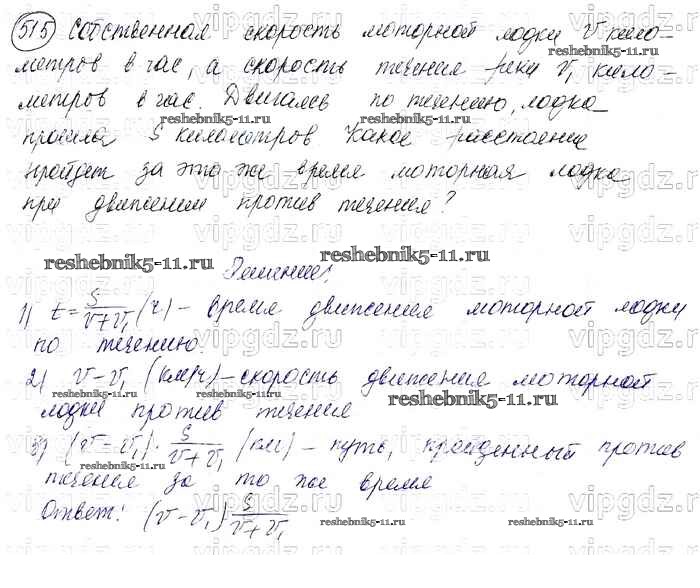 515 Собственная скорость моторной лодки v кило-
метров в час, а скорость течения реки v₁ кило-
метров в час. Двигаясь по течению, лодка
reshebnik5-11.ru
прошла S километров. Какое расстояние
пройдет за это же время моторная лодка
при движении против течения?
reshebnik5-11.ru
Решение:
1) t = S/(v+v₁) (ч) – время движения моторной лодки
по течению.
2) v – v₁ (км/ч) – скорость движения моторной
reshebnik5-11.ru
лодки против течения
3) (v – v₁) · S/(v+v₁) (км) – путь, пройденный против
течения за то же время
Ответ: (v – v₁) S/(v+v₁)
reshebnik5-11.ru
vipgdz.ru